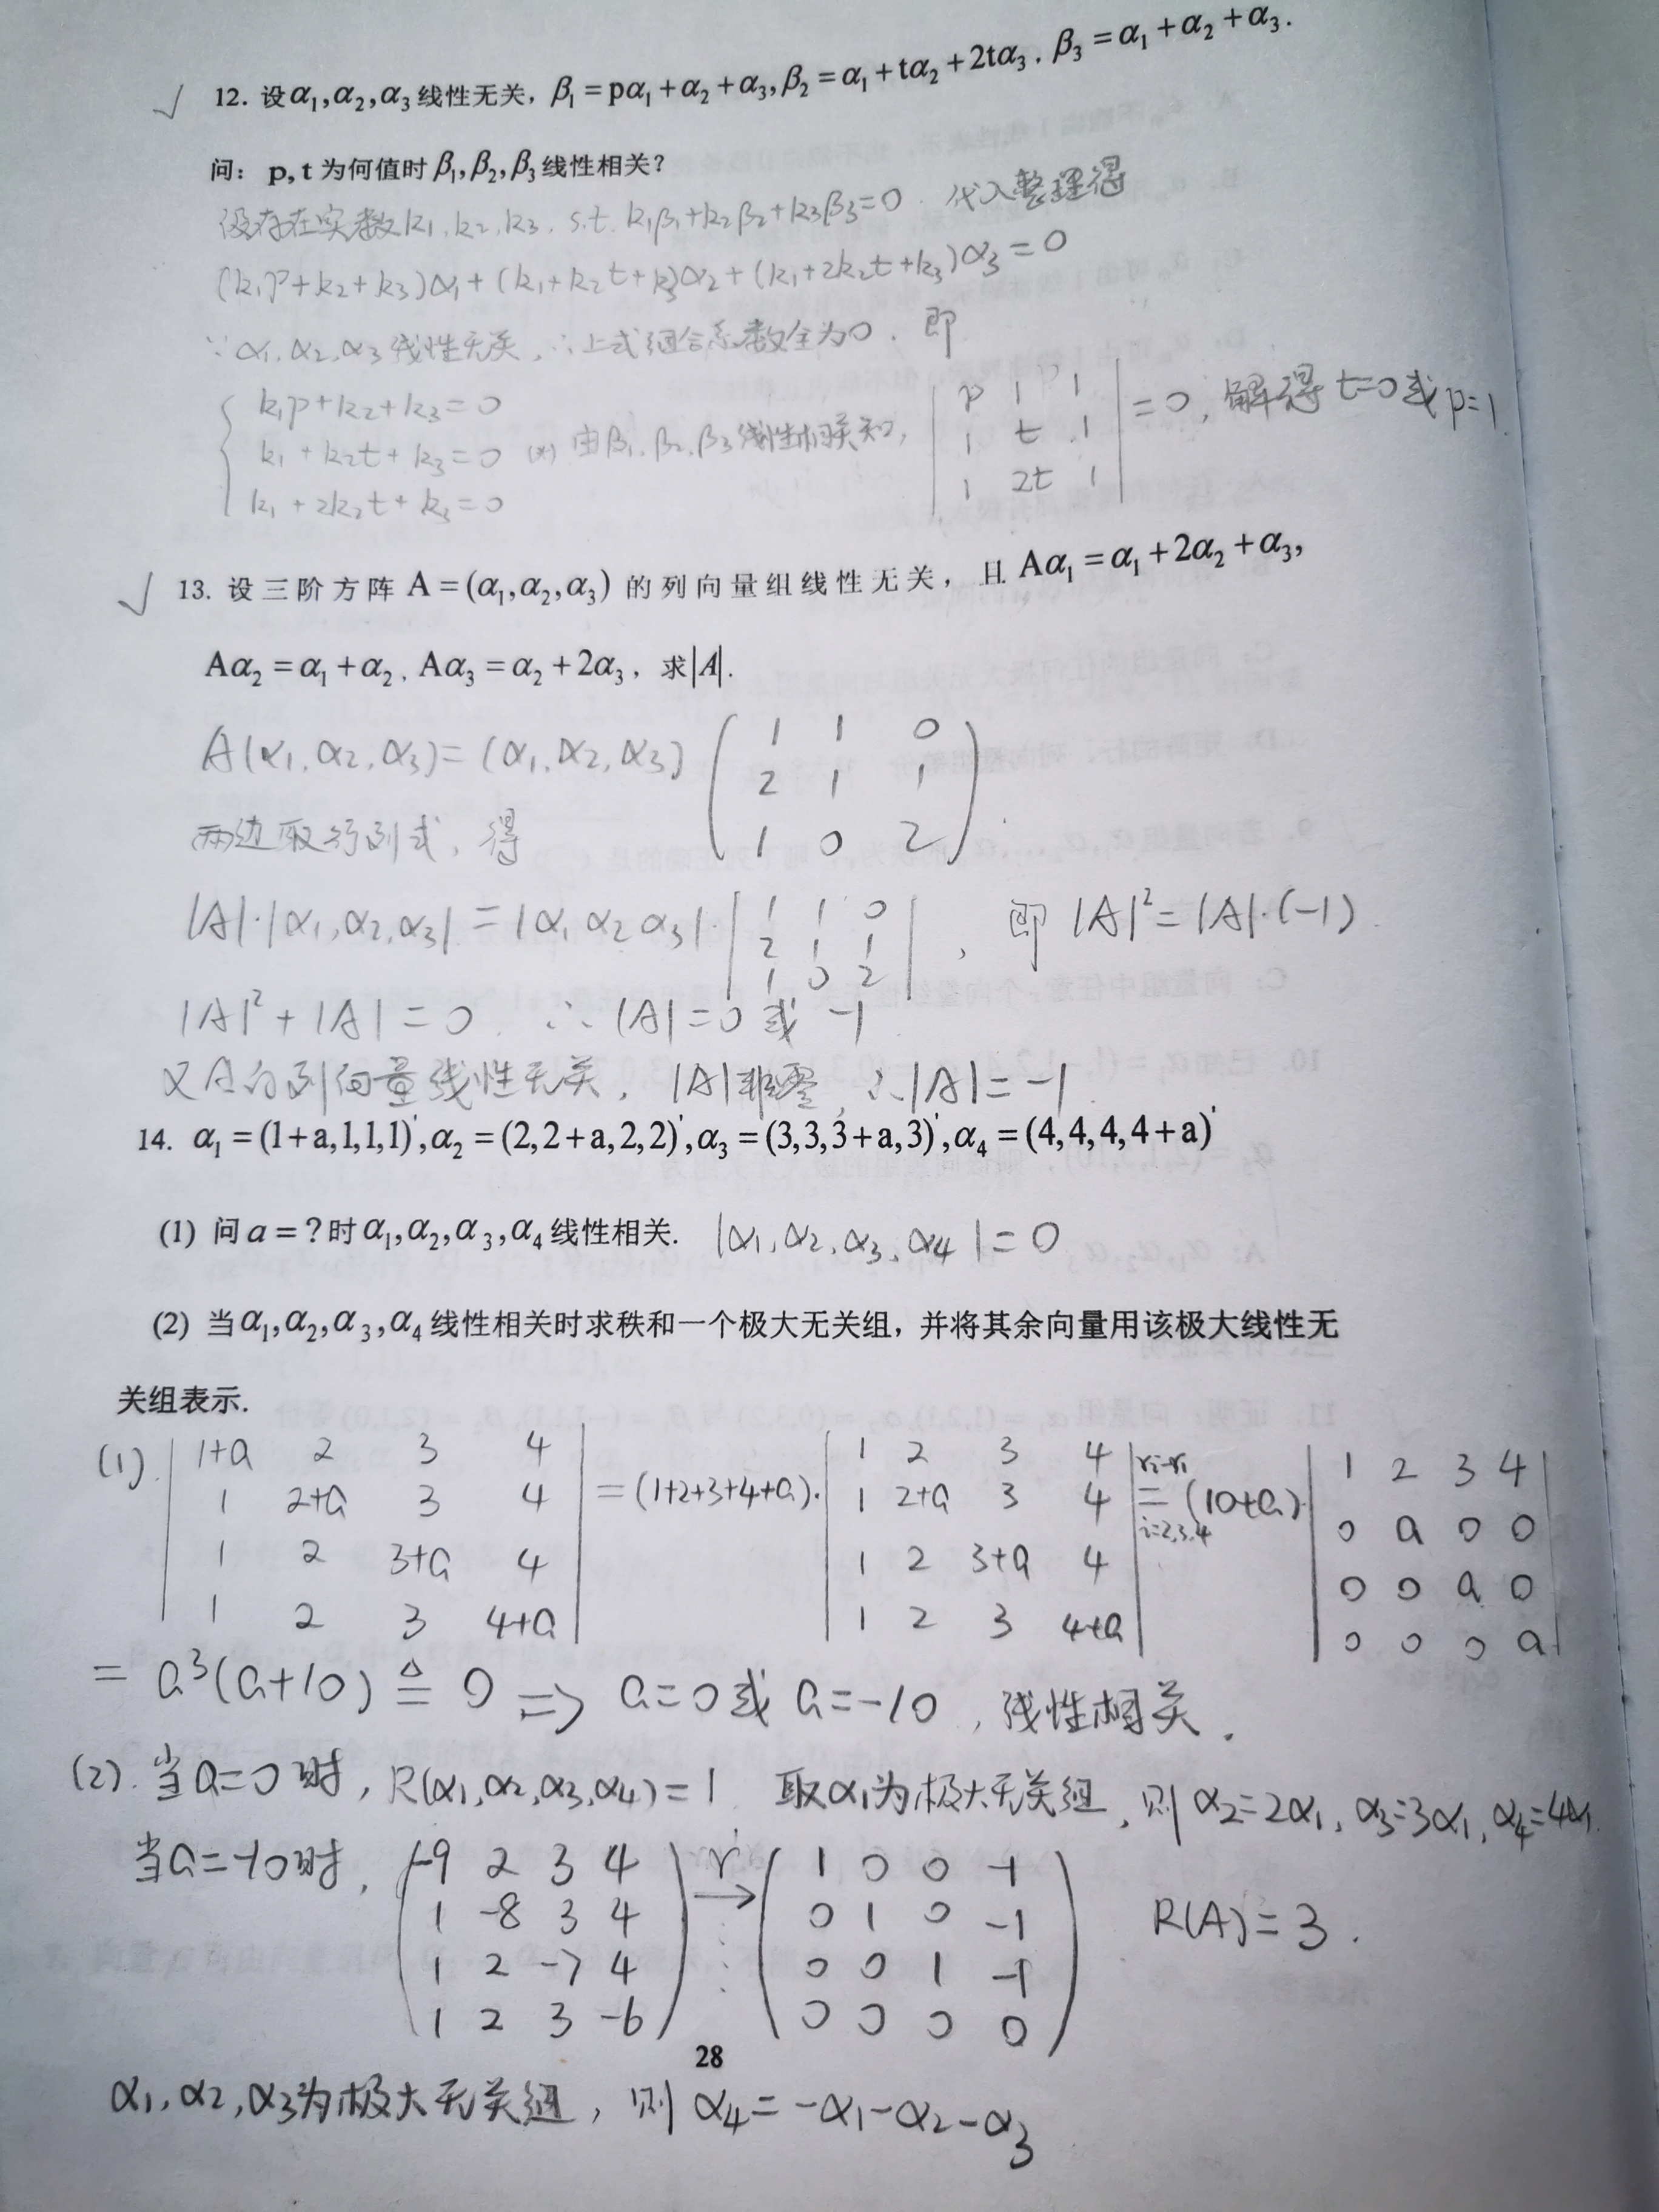 12. 设α₁,α₂,α₃线性无关, β₁=pα₁+α₂+α₃, β₂=α₁+tα₂+2tα₃, β₃=α₁+α₂+α₃.
问: p, t 为何值时β₁,β₂,β₃线性相关?
设存在实数k₁,k₂,k₃, s.t. k₁β₁+k₂β₂+k₃β₃=0. 代入整理得
(k₁p+k₂+k₃)α₁+(k₁+k₂t+k₃)α₂+(k₁+2k₂t+k₃)α₃=0
∵α₁,α₂,α₃线性无关, ∴上式组合系数全为0. 即
{ k₁p+k₂+k₃=0
k₁+k₂t+k₃=0 (*) 由β₁,β₂,β₃线性相关知, | p 1 1 ; 1 t 1 ; 1 2t 1 | =0, 解得t=0或p=1.
k₁+2k₂t+k₃=0
13. 设三阶方阵A=(α₁,α₂,α₃)的列向量组线性无关, 且Aα₁=α₁+2α₂+α₃,
Aα₂=α₁+α₂, Aα₃=α₂+2α₃, 求|A|.
A(α₁,α₂,α₃)=(α₁,α₂,α₃) ( 1 1 0 ; 2 1 1 ; 1 0 2 ).
两边取行列式, 得
|A|·|α₁,α₂,α₃|=|α₁ α₂ α₃|·| 1 1 0 ; 2 1 1 ; 1 0 2 |, 即|A|²=|A|·(-1).
|A|²+|A|=0. ∴|A|=0或-1
又A的列向量线性无关, |A|非零, ∴|A|=-1
14. α₁=(1+a,1,1,1)',α₂=(2,2+a,2,2)',α₃=(3,3,3+a,3)',α₄=(4,4,4,4+a)'
(1) 问a=?时α₁,α₂,α₃,α₄线性相关. |α₁,α₂,α₃,α₄|=0
(2) 当α₁,α₂,α₃,α₄线性相关时求秩和一个极大无关组, 并将其余向量用该极大线性无
关组表示.
(1). | 1+a 2 3 4 ; 1 2+a 3 4 ; 1 2 3+a 4 ; 1 2 3 4+a | =(1+2+3+4+a)·| 1 2 3 4 ; 1 2+a 3 4 ; 1 2 3+a 4 ; 1 2 3 4+a | rᵢ-r₁ = i=2,3,4 (10+a)·| 1 2 3 4 ; 0 a 0 0 ; 0 0 a 0 ; 0 0 0 a |
= a³(a+10) ≜ 0 ⇒ a=0或a=-10, 线性相关.
(2). 当a=0时, R(α₁,α₂,α₃,α₄)=1. 取α₁为极大无关组, 则α₂=2α₁, α₃=3α₁, α₄=4α₁.
当a=-10时, ( -9 2 3 4 ; 1 -8 3 4 ; 1 2 -7 4 ; 1 2 3 -6 ) r → ( 1 0 0 -1 ; 0 1 0 -1 ; 0 0 1 -1 ; 0 0 0 0 ) R(A)=3.
28
α₁,α₂,α₃为极大无关组, 则α₄=-α₁-α₂-α₃